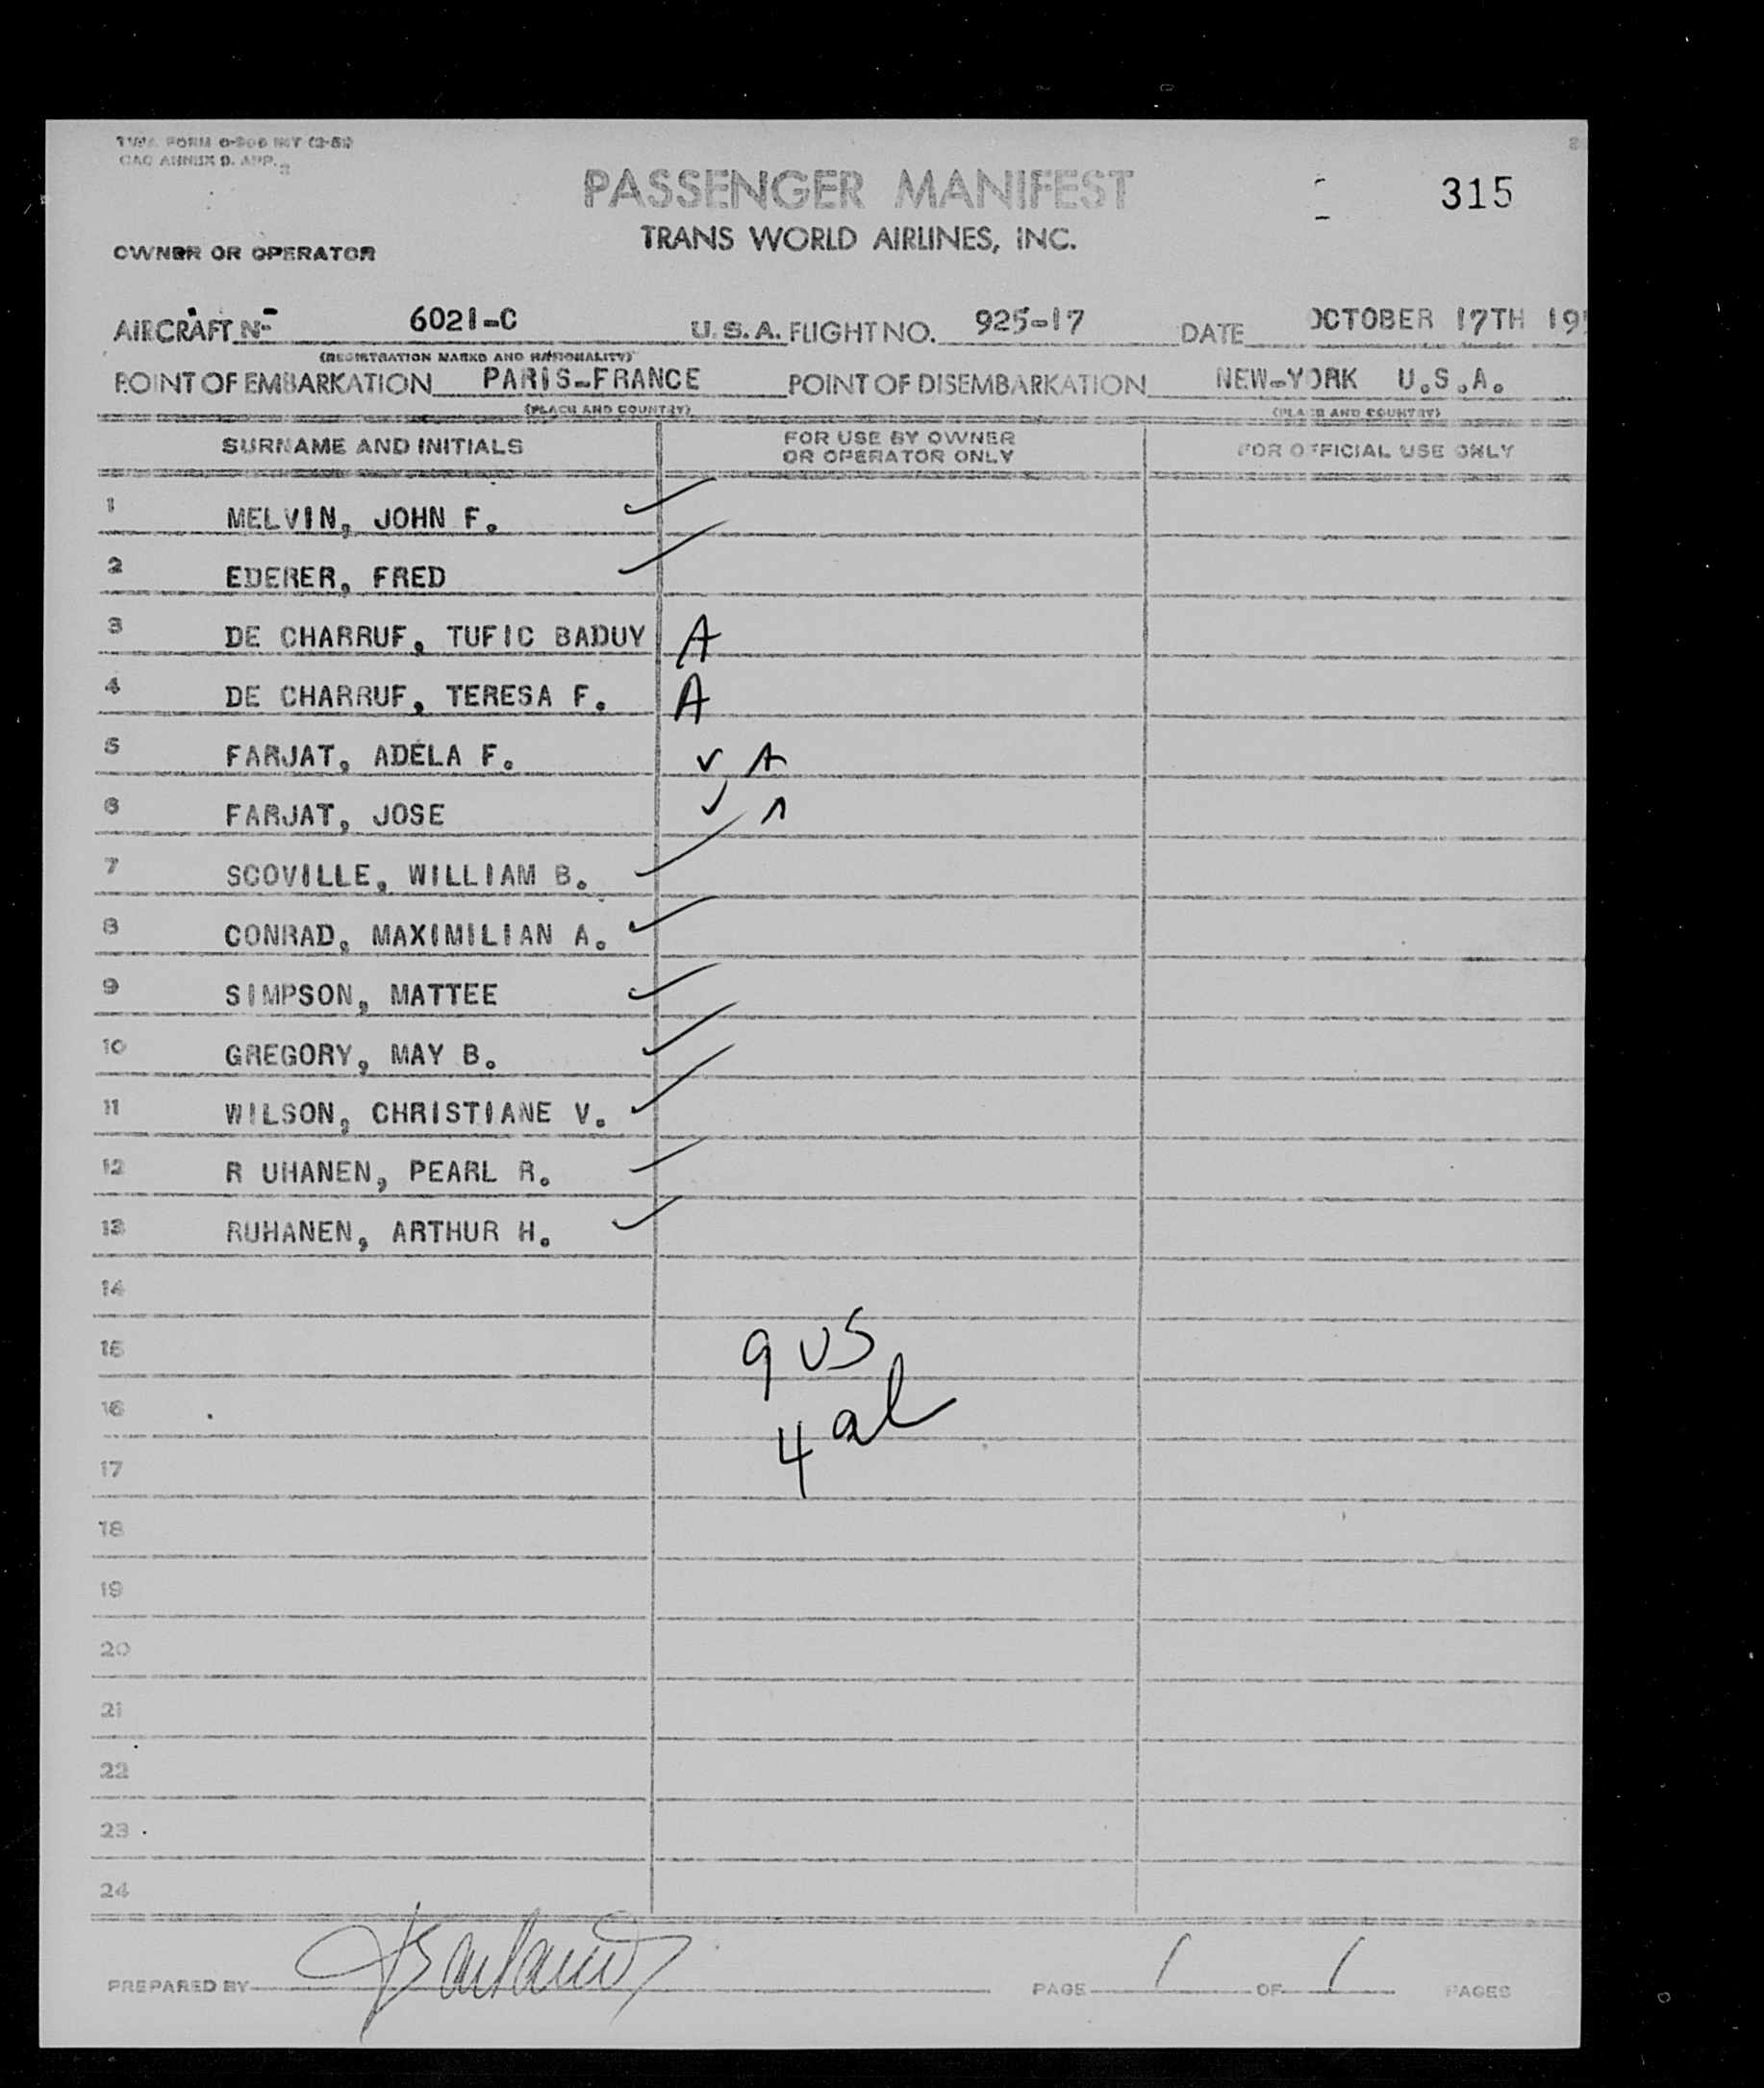 TWA FORM O-806 INT (3-51)
CAO ANNEX 9. APP. 3
PASSENGER MANIFEST
315
TRANS WORLD AIRLINES, INC.
OWNER OR OPERATOR
AIRCRAFT N- 6021-C U.S.A. FLIGHT NO. 925-17 DATE OCTOBER 17TH 19
(REGISTRATION MARKS AND NATIONALITY)
POINT OF EMBARKATION PARIS-FRANCE POINT OF DISEMBARKATION NEW-YORK U.S.A.
(PLACE AND COUNTRY) (PLACE AND COUNTRY)
SURNAME AND INITIALS FOR USE BY OWNER OR OPERATOR ONLY FOR OFFICIAL USE ONLY
1 MELVIN, JOHN F. ✓
2 EDERER, FRED ✓
3 DE CHARRUF, TUFIC BADUY A
4 DE CHARRUF, TERESA F. A
5 FARJAT, ADELA F. ✓ A
6 FARJAT, JOSE ✓ A
7 SCOVILLE, WILLIAM B. ✓
8 CONRAD, MAXIMILIAN A. ✓
9 SIMPSON, MATTEE ✓
10 GREGORY, MAY B. ✓
11 WILSON, CHRISTIANE V. ✓
12 R UHANEN, PEARL R. ✓
13 RUHANEN, ARTHUR H. ✓
14
15 9 US
16 4 al
17
18
19
20
21
22
23
24
PREPARED BY PAGE 1 OF 1 PAGES